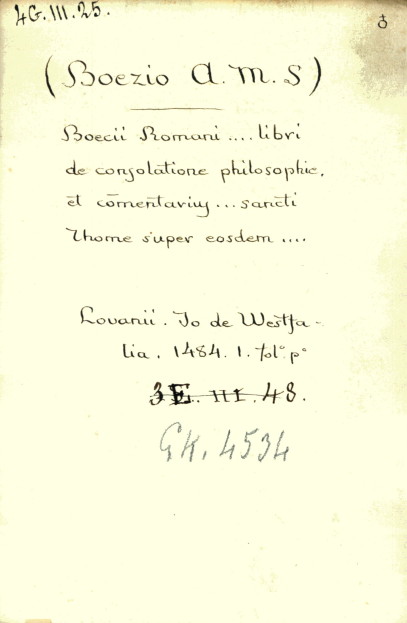 4G.III.25.
(Boezio A.M.S)
Boecii Romani .... libri
de consolatione philosophie,
et cōmentariuʒ ... sancti
Thome super eosdem ....
Lovanii. Jo de Westfa-
lia. 1484. 1. fol° p°
3E. III. 48.
GK. 4534